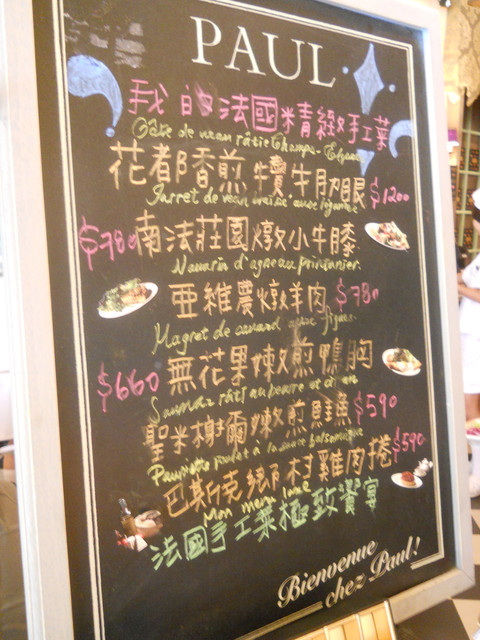 PAUL
我的法國精緻手工菜
Côte de veau rôtie Champs-Elysées
花都香煎犢牛肋眼 $1200
Jarret de veau braisé aux légumes
$780 南法莊園燉小牛膝
Navarin d'agneau printanier
亞維農燉羊肉 $780
Magret de canard aux figues
$660 無花果嫩煎鴨胸
Saumon rôti au beurre
聖米榭爾嫩煎鮭魚 $590
poulet à la sauce balsamique
巴斯克鄉村雞肉捲 $590
Mon menu
法國手工菜極致饗宴
Bienvenue
chez Paul!